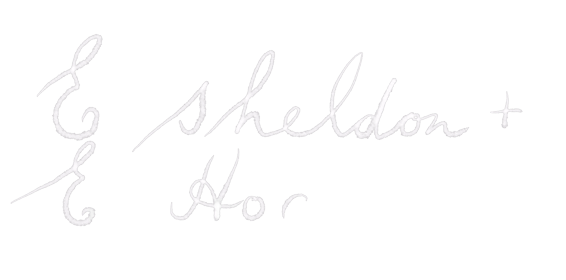 E sheldon +
E Hor